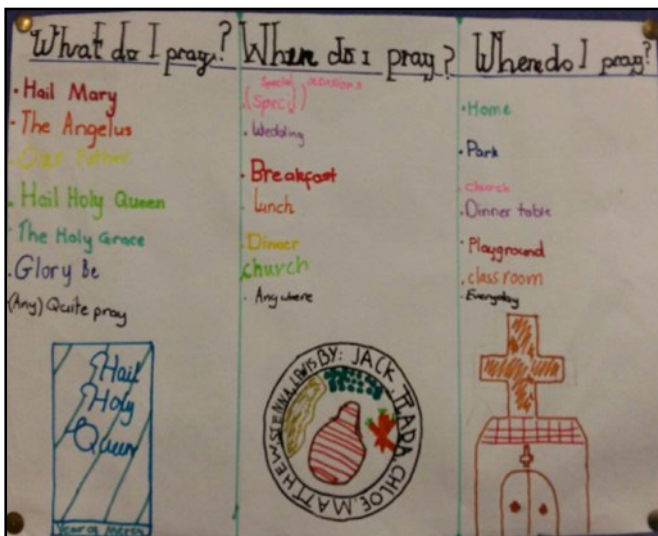 What do I pray?
· Hail Mary
· The Angelus
· Our Father
· Hail Holy Queen
· The Holy Grace
· Glory Be
(Any) Quite pray
Hail
Holy
Queen
Year of Mercy
When do I pray?
Special
(Specil) occasions
· Wedding
· Breakfast
· Lunch
· Dinner
church
· Any where
BY: JACK
CHLOE, MATTHEW, SIENNA, LEWIS
Where do I pray?
· Home
· Park
· church
· Dinner table
· Playground
· class room
· Everyday